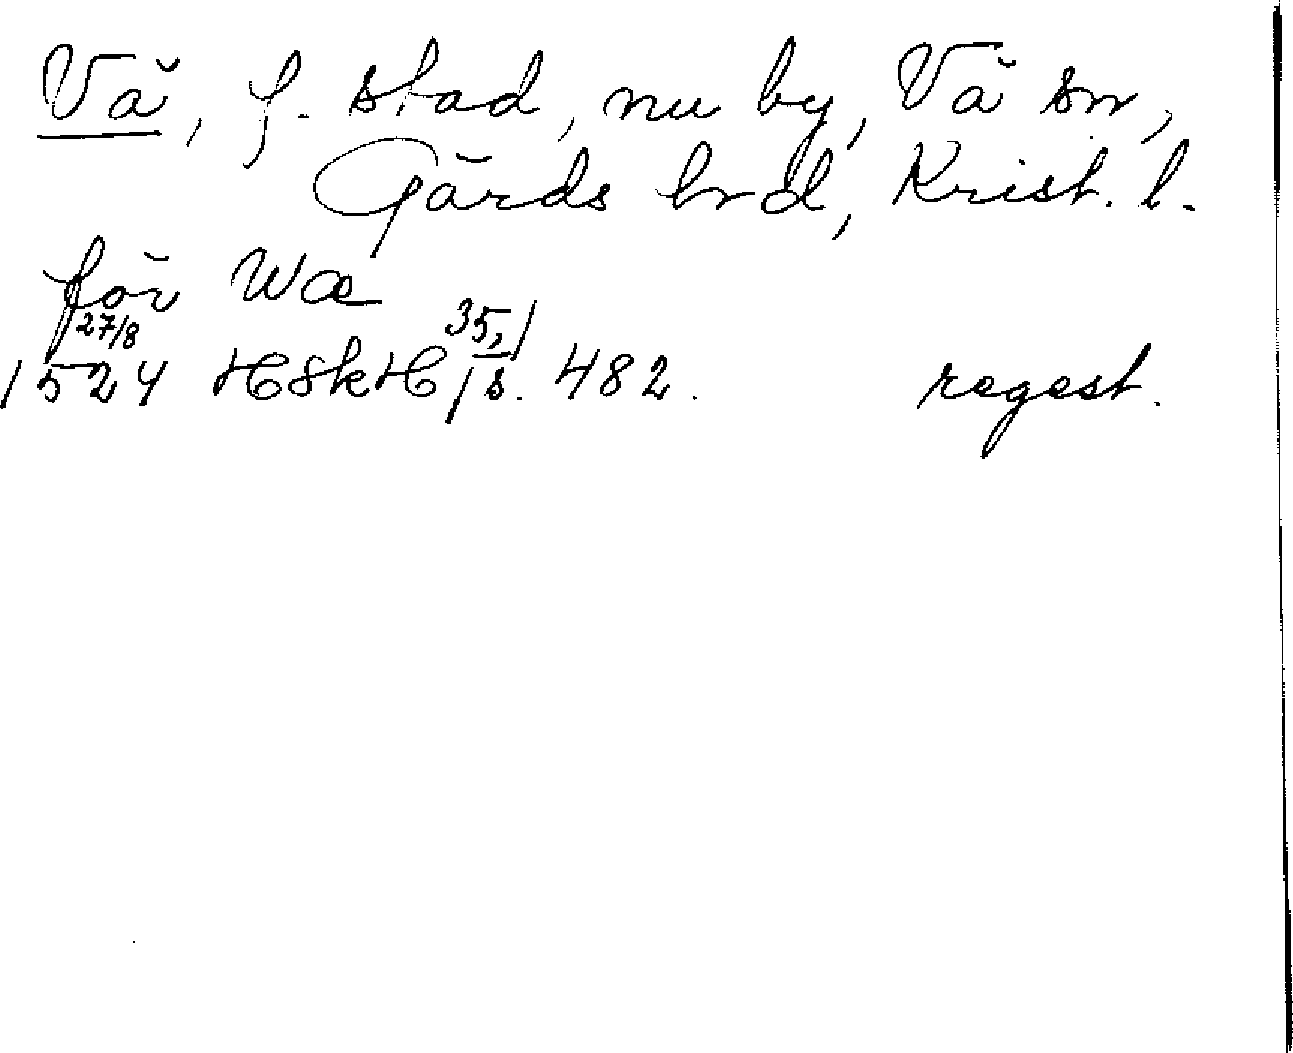 Vä, f. stad, nu by, Vä sn,
Gärds hrd, Krist. l.
för Wæ
1524 27/8 HSkH 35,1 s. 482. regest.